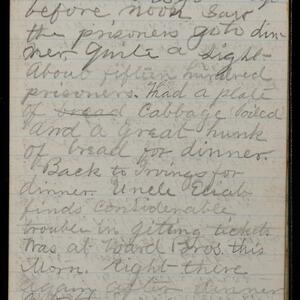 before noon Saw
the prisoners go to din-
ner Quite a sight-
About fifteen hundred
prisoners. Had a plate
of bread Cabbage boiled
And a great hunk
of bread for dinner.
Back to Irvings for
dinner. Uncle Eliab
finds considerable
trouble in gitting tickets
Was at Ward Bros. this
Morn. Right there
again after dinner